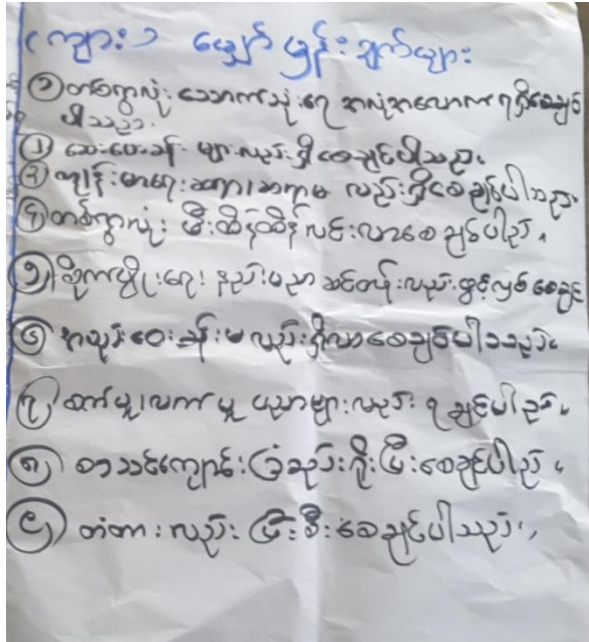 (ကျား) မျှော်မှန်းချက်များ
၁) တစ်ရွာလုံး သောက်သုံးရေ အလုံအလောက်ရရှိစေချင်
ပါသည်။
၂) ဆေးပေးခန်း များလည်းရှိစေချင်ပါသည်။
၃) ကျန်းမာရေးဆရာ၊ဆရာမ လည်းရှိစေချင်ပါသည်။
၄) တစ်ရွာလုံး မီးထိန်ထိန်လင်းလာစေချင်ပါည်။
၅) စိုက်ပျိုးရေး နည်းပညာ သင်တန်းလည်းဖွင့်လှစ်စေချင်
၆) အထူးဝေးခန်းမလည်းရှိလာစေချင်ပါသည်။
၇) စက်မှု၊လက်မှု ပညာများလည်း ရချင်ပါည်။
၈) စာသင်ကျောင်းခြံစည်းရိုးပြီးစေချင်ပါည်။
၉) တံတားလည်း ပြီးစီးစေချင်ပါသည်။